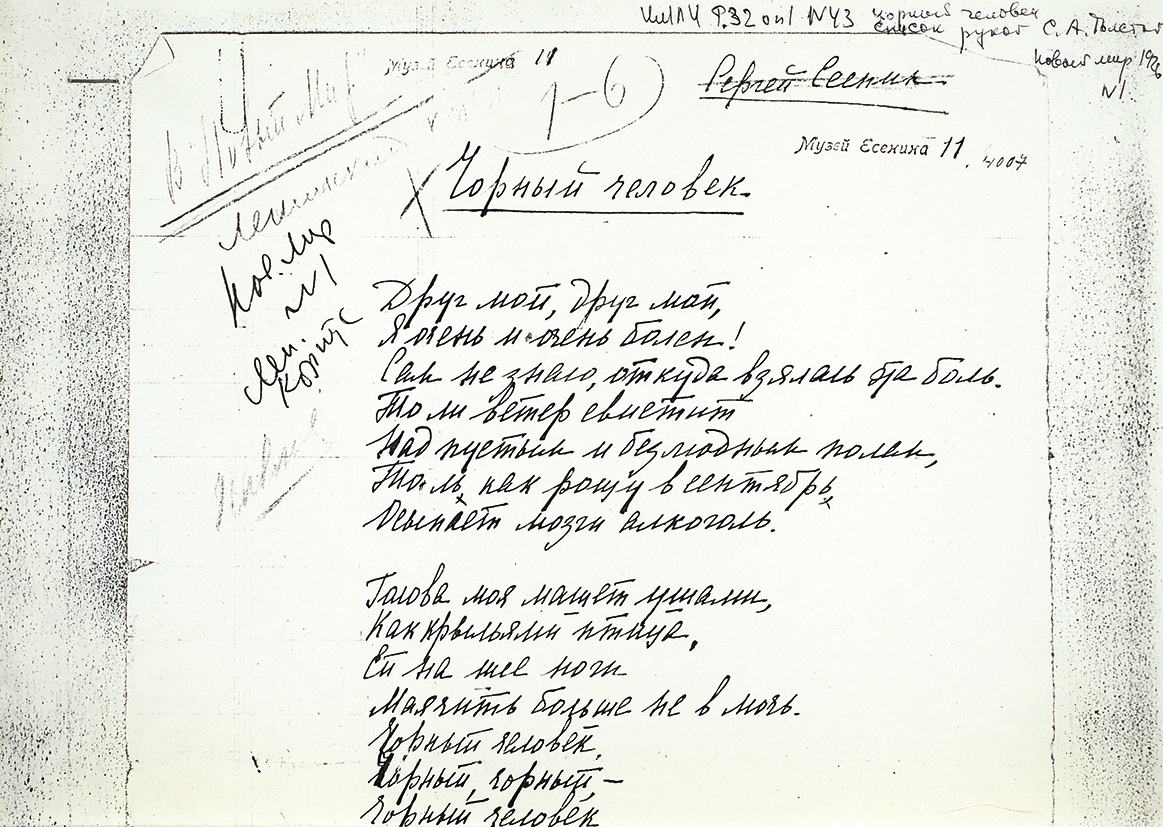 ИМЛИ Ф.32 оп1 N43 чорный человек
список рукой С. А. Толстой
Новый мир 1926
N1
Музей Есенина 11
1-6
Сергей Есенин
Музей Есенина 11
4007
В Новый Мир
Ленинский
Нов. Мир
N1
Лен.
корпус
Чорный человек
Друг мой, друг мой,
Я очень и очень болен!
Сам не знаю, откуда взялась эта боль.
То ли ветер свистит
Над пустым и безлюдным полем,
То ль, как рощу в сентябрь,
Осыпает мозги алкоголь.
Голова моя машет ушами,
Как крыльями птица,
Ей на шее ноги
Маячить больше не в мочь.
Чорный человек,
Чорный, чорный, —
Чорный человек